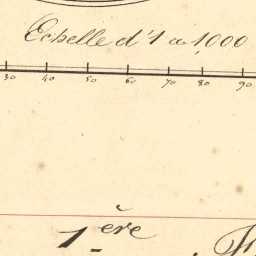 Echelle d'1 a 1000
30 40 50 60 70 80 90
1ère